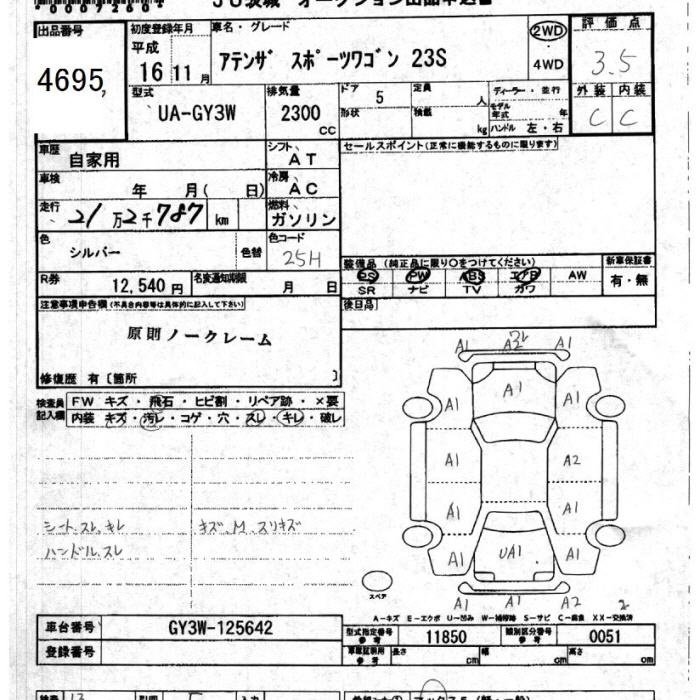 00072604
JU茨城 オークション出品申込書
出品番号 初度登録年月 車名・グレード 2WD 評価点
4695 平成 16 11月 アテンザ スポーツワゴン 23S 4WD 3.5
型式 排気量 ドア 定員 ディーラー・並行 外装 内装
UA-GY3W 2300 CC 5 人 モデル年式 年 C C
形状 積載 kg ハンドル 左・右
車歴 自家用 シフト AT セールスポイント(正常に機能するものに限ります)
車検 年 月( 日) 冷房 AC
走行 21万2千787 km 燃料 ガソリン
色 シルバー 色替 色コード 25H
装備品 (純正品に限り○をつけてください) 新車保証書
R券 12,540円 名変通知期限 月 日 PS PW ABS エアB AW 有・無
SR ナビ TV カワ
注意事項申告欄(不具合内容等は具体的に記入して下さい) 後日品
原則ノークレーム
修復歴 有〔箇所 〕
検査員記入欄 FW キズ・飛石・ヒビ割・リペア跡・×要
内装 キズ・汚レ・コゲ・穴・スレ・キレ・破レ
A1 A2 A1
A1 A1 A1
A1 A2
A1 A1
A1 UA1 A1
A1 A1 A2 2
シートスレ、キレ キズ M スリキズ
ハンドルスレ
スペア
A－キズ E－エクボ U－凹み W－補修跡 S－サビ C－腐食 XX－交換済
車台番号 GY3W-125642 型式指定番号 参考 11850 類別区分番号 参考 0051
登録番号 車検証記載 参考 長さ cm 幅 cm 高さ cm